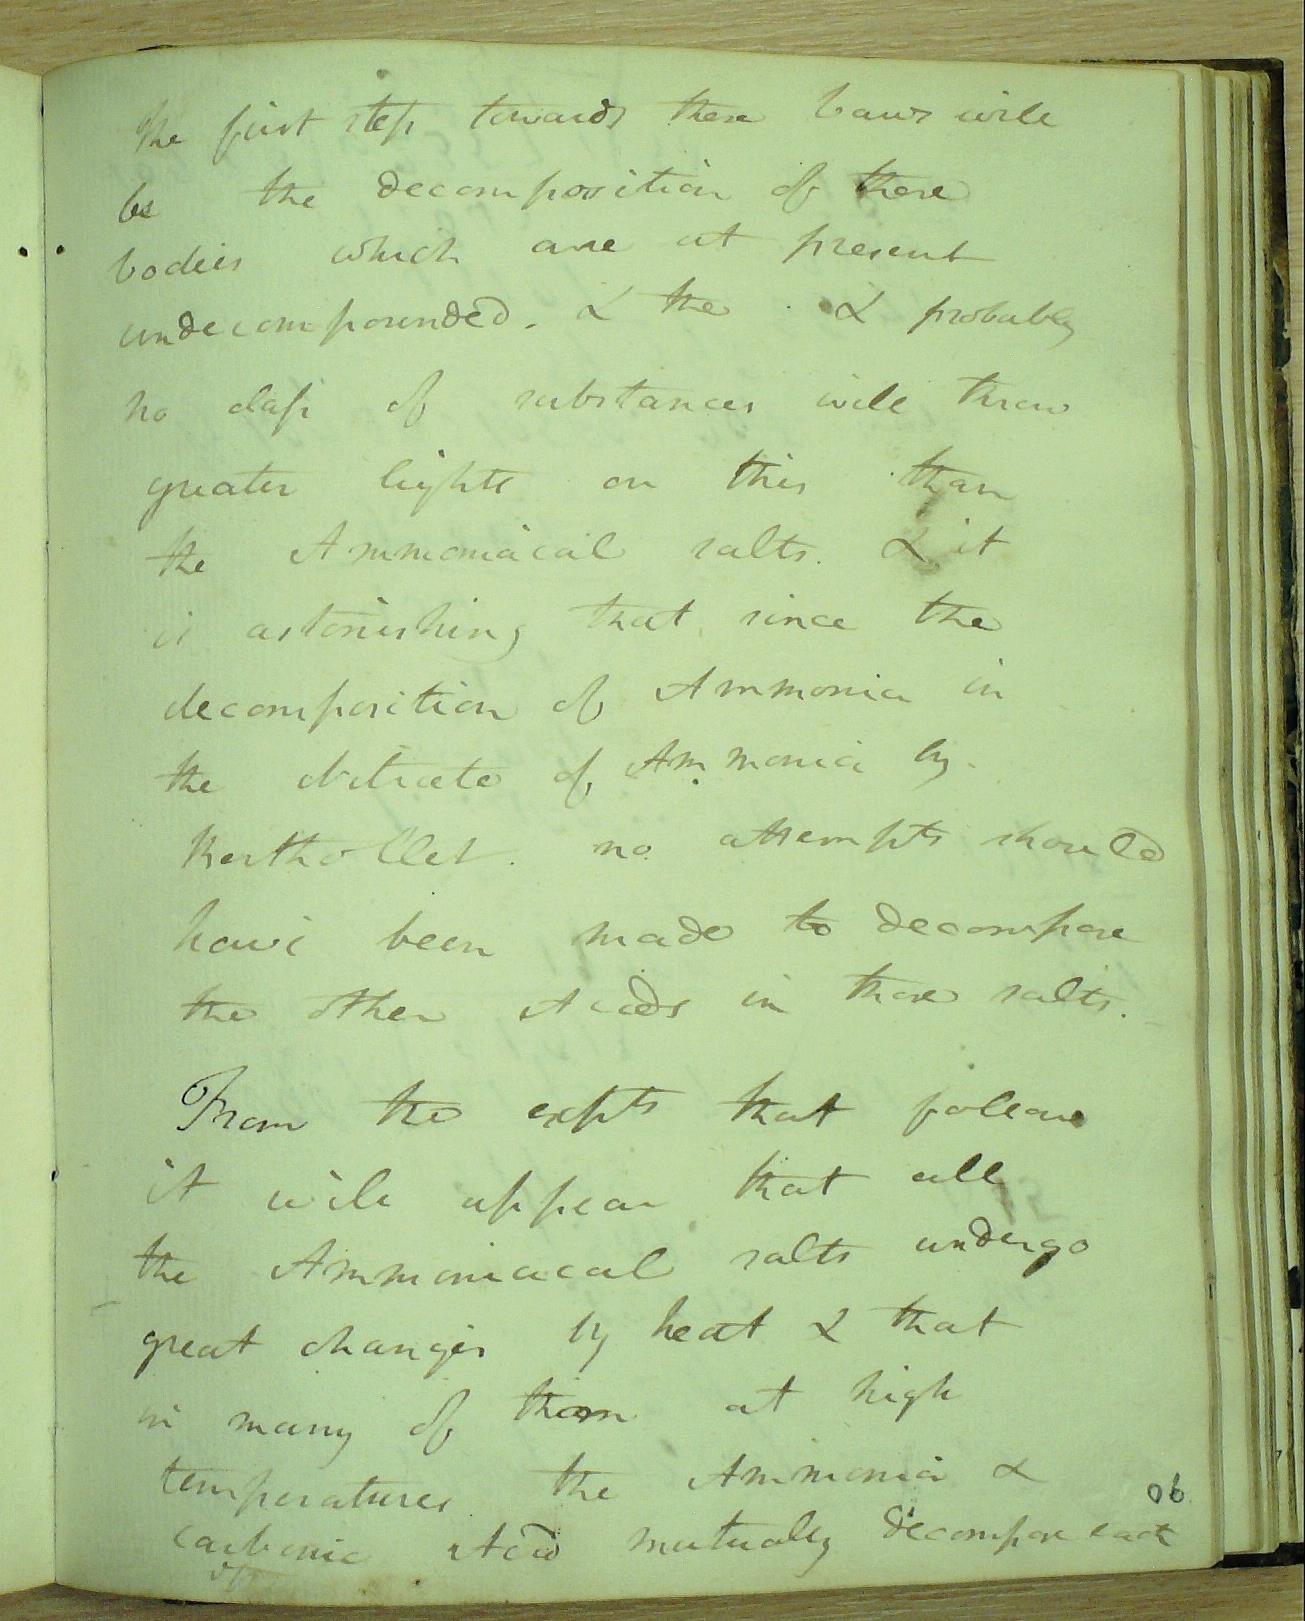 The first step towards these Laws will
be the decomposition of those
bodies which are at present
undecompounded. & the & probably
no class of substances will throw
greater lights on this than
the Ammoniacal salts. & it
is astonishing that since the
decomposition of Ammonia in
the Nitrate of Ammonia by
Berthollet. no attempts should
have been made to decompose
the other Acids in those salts.
From the expts that follow
it will appear that all
the Ammoniacal salts undergo
great changes by heat & that
in many of them at high
temperatures the Ammonia &
carbonic Acid mutually decompose each
06